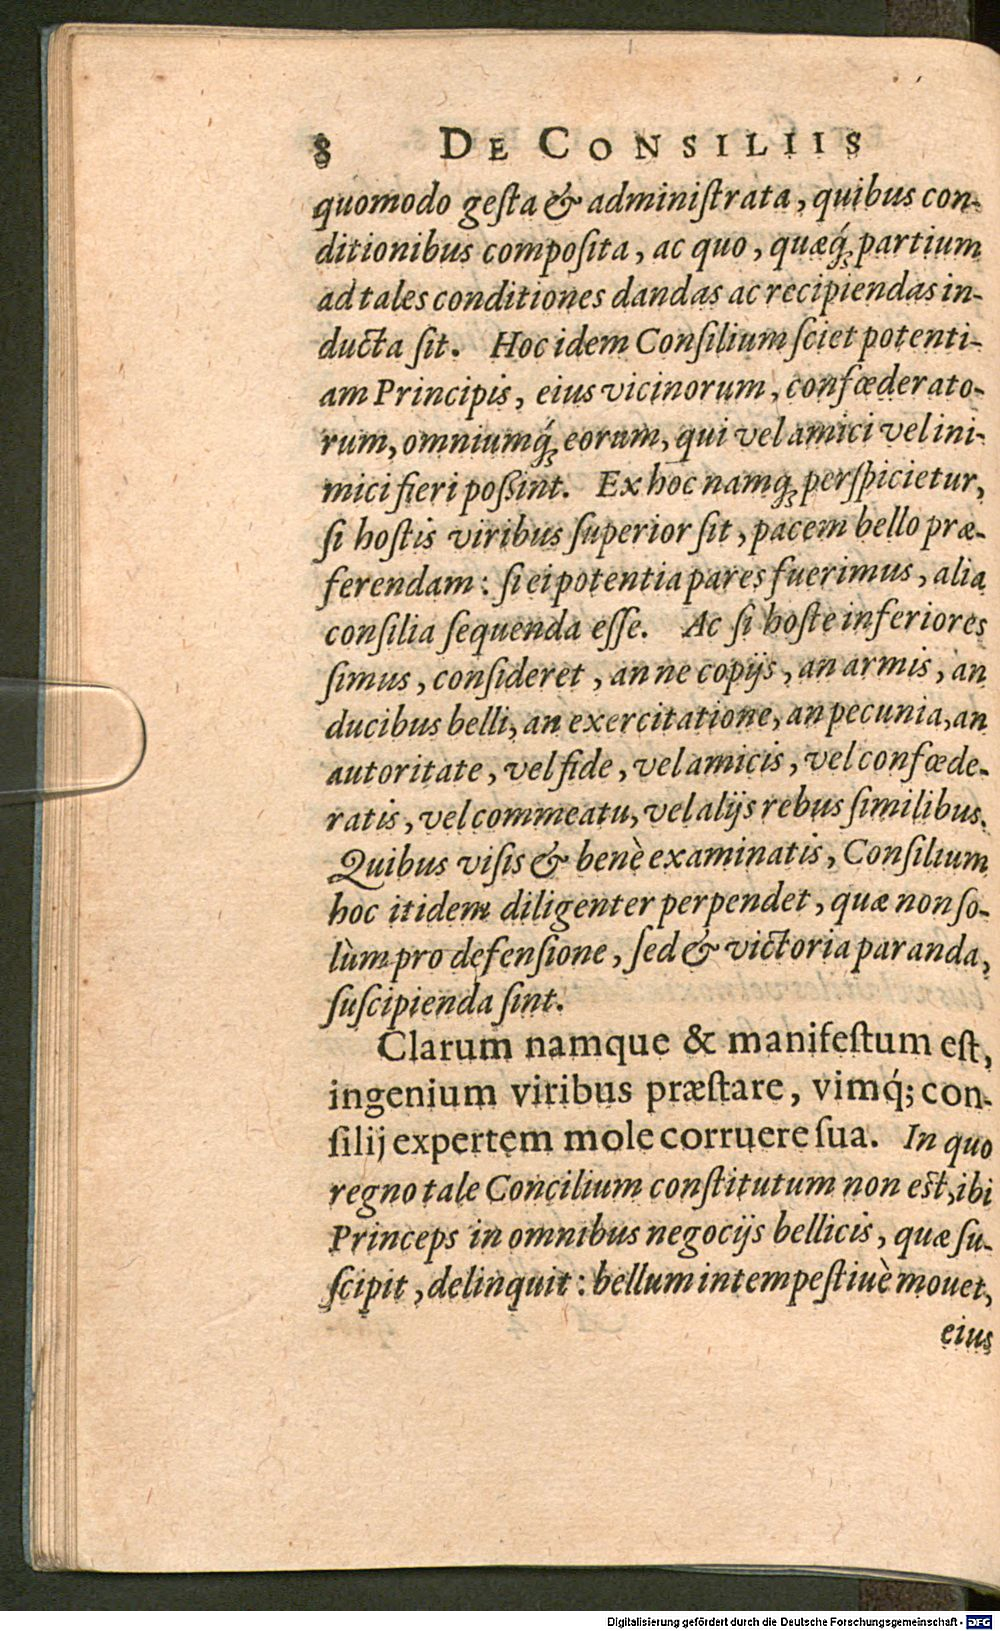 8 DE CONSILIIS
quomodo geſta & adminiſtrata, quibus con-
ditionibus compoſita, ac quo, quæq́ꝫ partium
ad tales conditiones dandas ac recipiendas in-
ducta ſit. Hoc idem Conſilium ſciet potenti-
am Principis, eius vicinorum, confœderato-
rum, omniumq́ꝫ eorum, qui vel amici vel ini-
mici fieri poßint. Ex hoc namqꝫ perſpicietur,
ſi hoſtis viribus ſuperior ſit, pacem bello præ-
ferendam: ſi ei potentia pares fuerimus, alia
conſilia ſequenda eſſe. Ac ſi hoſte inferiores
ſimus, conſideret, an ne copijs, an armis, an
ducibus belli, an exercitatione, an pecunia, an
autoritate, vel fide, vel amicis, vel confœde-
ratis, vel commeatu, vel alijs rebus ſimilibus.
Quibus viſis & benè examinatis, Conſilium
hoc itidem diligenter perpendet, quæ non ſo-
lùm pro defenſione, ſed & victoria paranda,
ſuſcipienda ſint.
Clarum namque & manifeſtum eſt,
ingenium viribus præſtare, vimq́; con-
ſilij expertem mole corruere ſua. In quo
regno tale Concilium conſtitutum non eſt, ibi
Princeps in omnibus negocijs bellicis, quæ ſu-
ſcipit, delinquit: bellum intempeſtiuè mouet,
eius
Digitalisierung gefördert durch die Deutsche Forschungsgemeinschaft - DFG